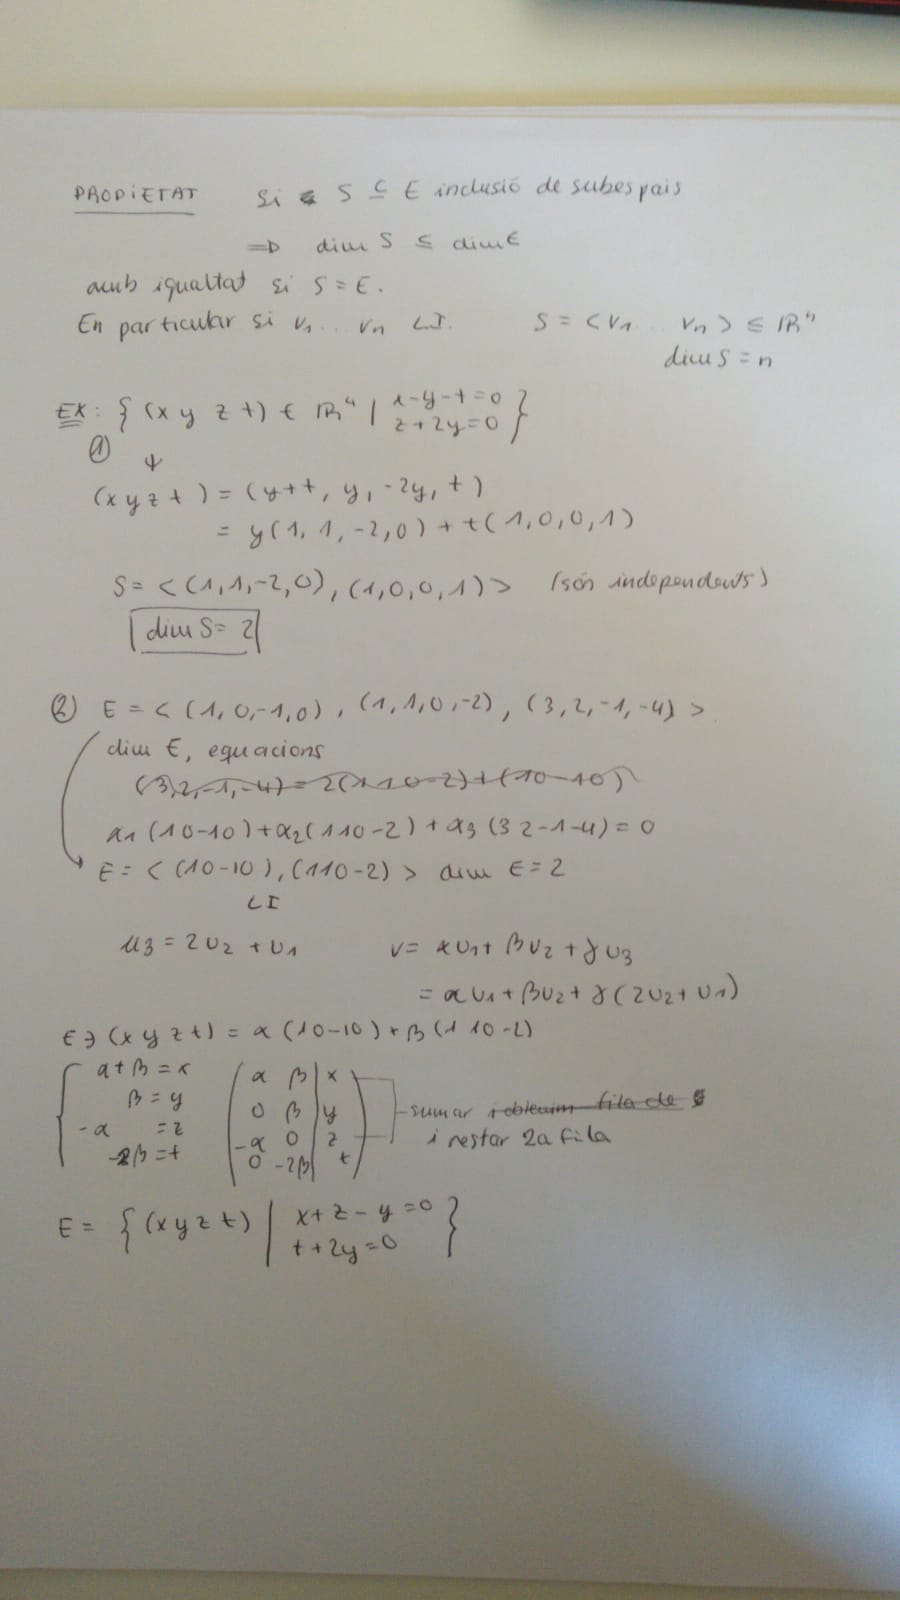 PROPIETAT Si S ⊆ E inclusió de subespais
⇒ dim S ≤ dim E
amb igualtat si S = E.
En particular si v₁ ... vₙ LI. S = < v₁ ... vₙ > ≤ ℝⁿ
dim S = n
EX: { (x y z t) ∈ ℝ⁴ | x-y-t=0
z+2y=0 }
①
(x y z t) = (y+t, y, -2y, t)
= y(1, 1, -2, 0) + t(1, 0, 0, 1)
S = < (1, 1, -2, 0), (1, 0, 0, 1) > (són independents)
dim S = 2
② E = < (1, 0, -1, 0), (1, 1, 0, -2), (3, 2, -1, -4) >
dim E, equacions
(3, 2, -1, -4) = 2(1 1 0 -2) + (1 0 -1 0)
α₁ (1 0 -1 0) + α₂ (1 1 0 -2) + α₃ (3 2 -1 -4) = 0
E = < (1 0 -1 0), (1 1 0 -2) > dim E = 2
LI
u₃ = 2u₂ + u₁ v = αu₁ + βu₂ + γu₃
= αu₁ + βu₂ + γ(2u₂ + u₁)
E ∋ (x y z t) = α (1 0 -1 0) + β (1 1 0 -2)
α + β = x α β | x
β = y 0 β | y sumar i obtenim fila de
-α = z -α 0 | z i restar 2a fila
-2β = t 0 -2β | t
E = { (x y z t) | x + z - y = 0
t + 2y = 0 }